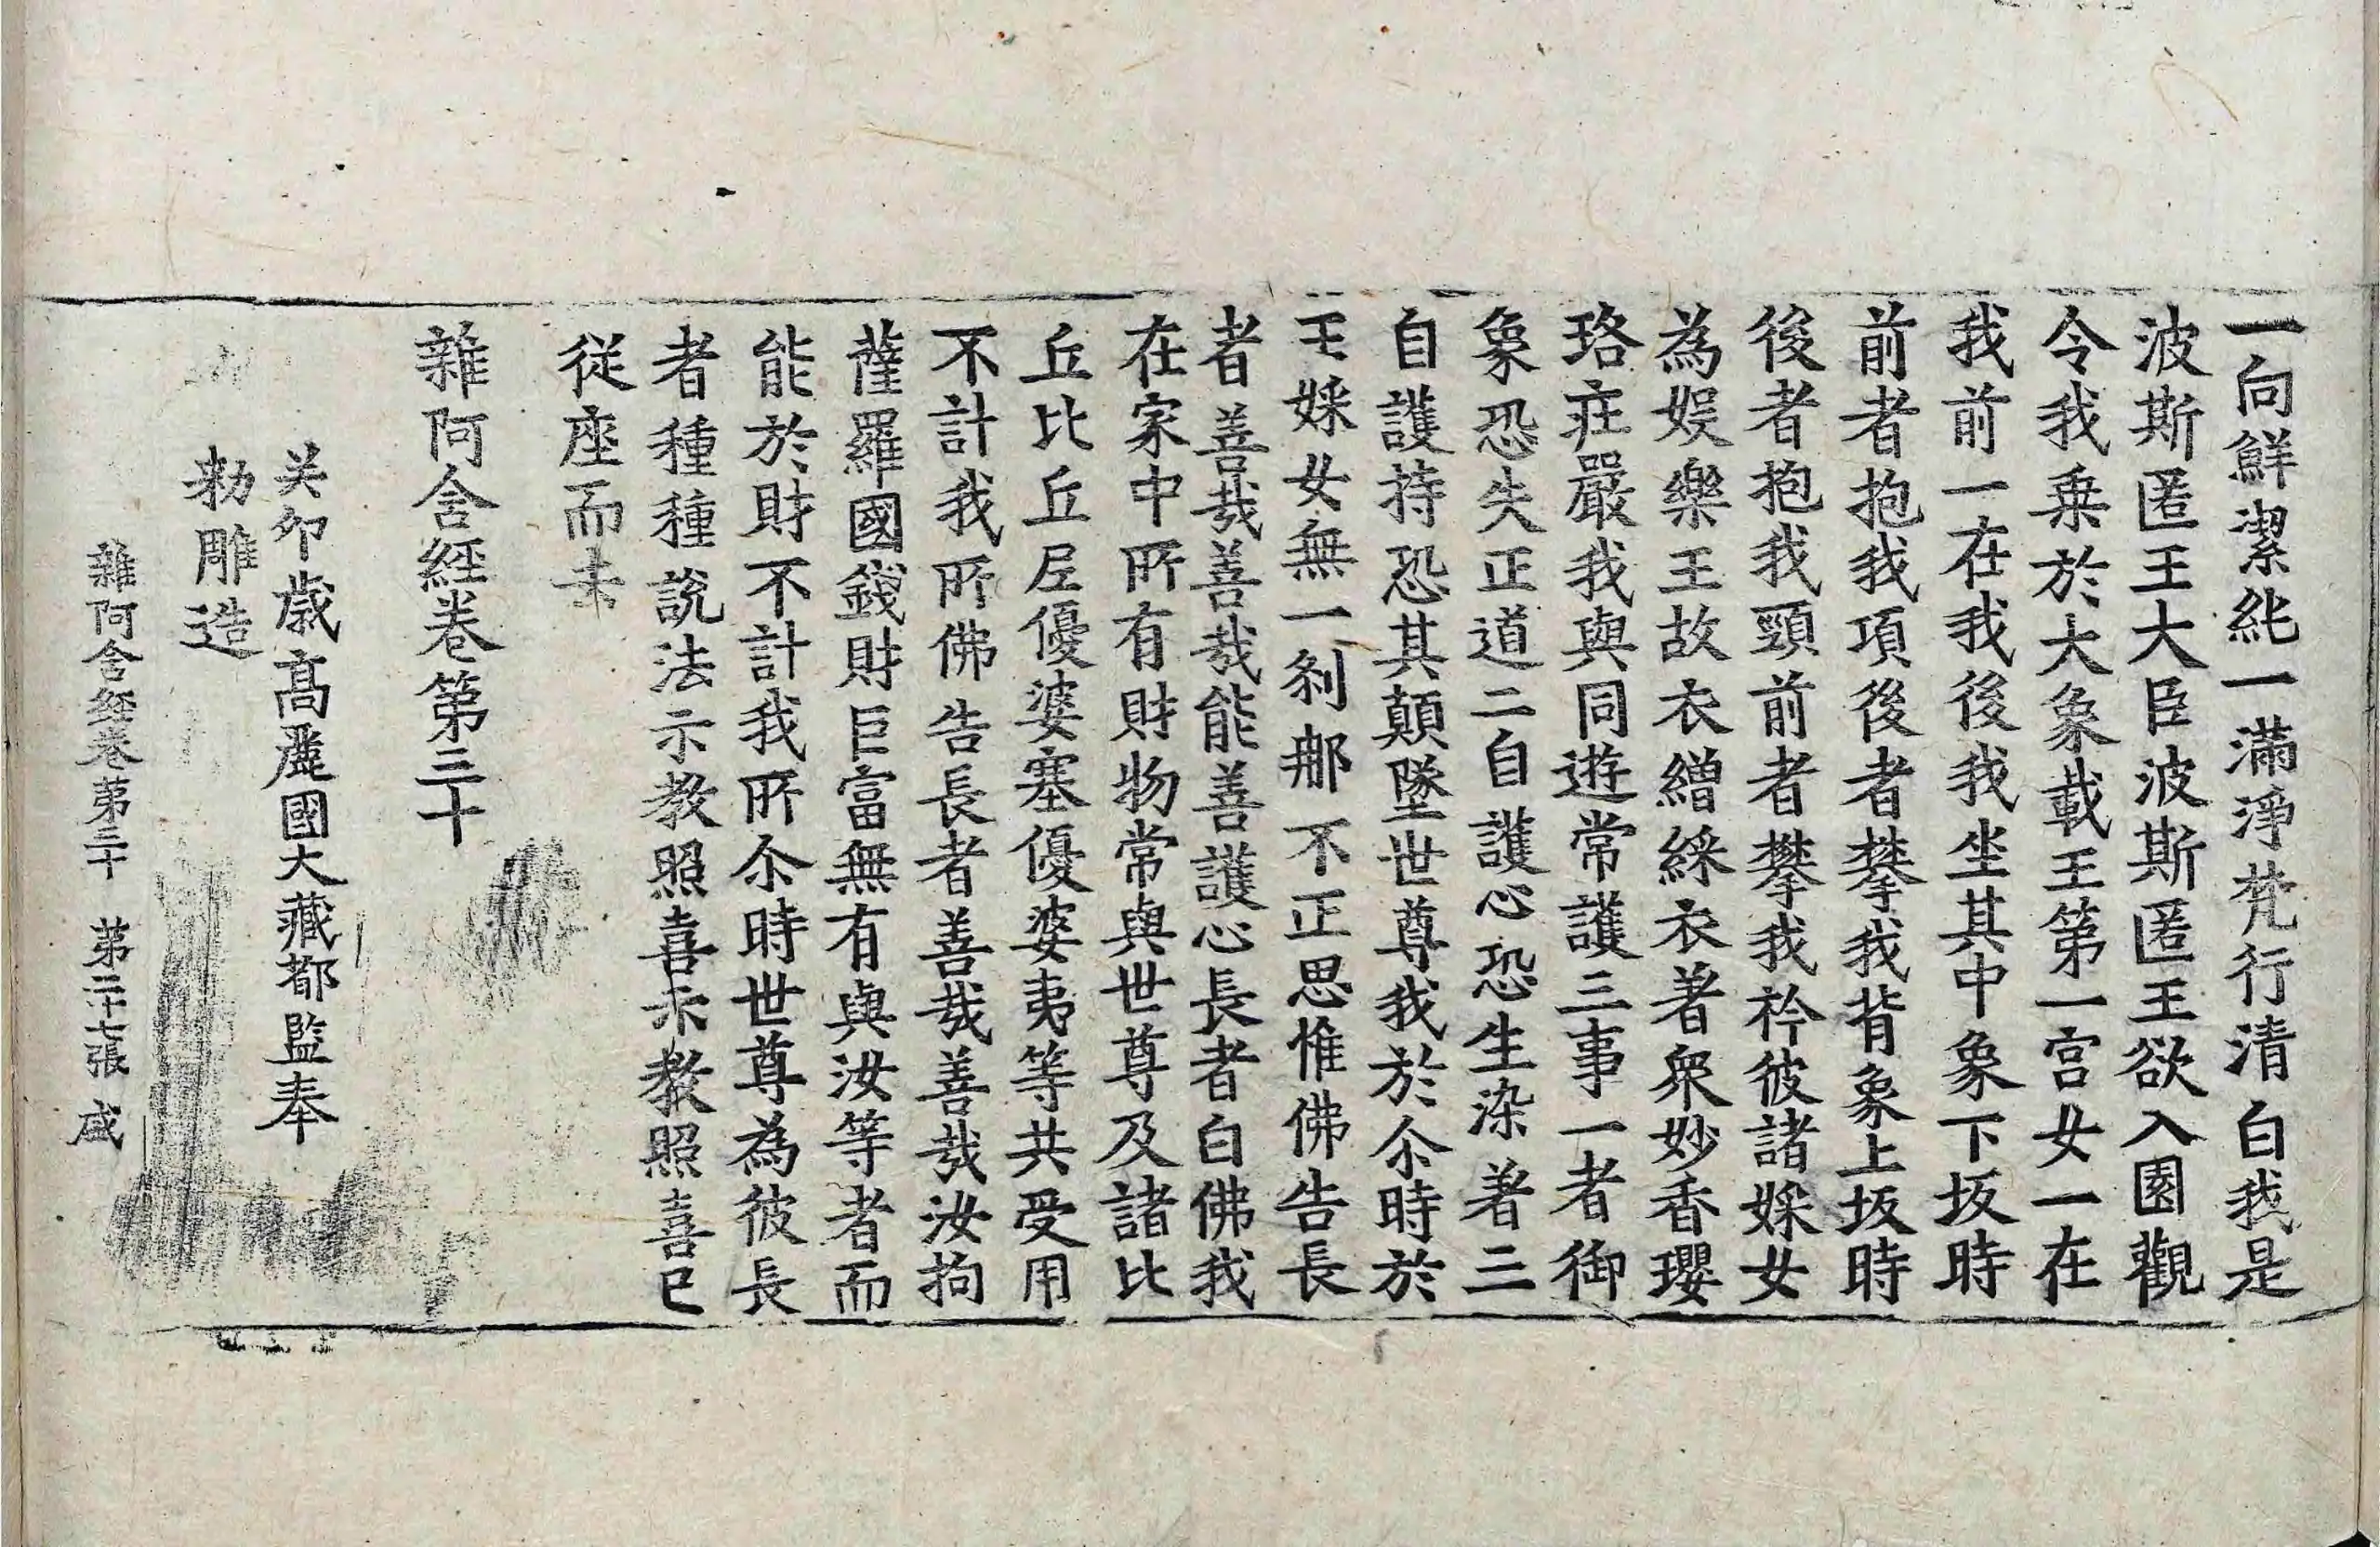 一向鮮潔純一滿淨梵行清白我是
波斯匿王大臣波斯匿王欲入園觀
令我乗於大象載王第一宮女一在
我前一在我後我坐其中象下坂時
前者抱我項後者攀我背象上坂時
後者抱我頸前者攀我衿彼諸婇女
為娱樂王故衣繒綵衣著衆妙香瓔
珞莊嚴我與同遊常護三事一者御
象恐失正道二自護心恐生染著三
自護持恐其顛墜世尊我於尒時於
王婇女無一刹那不正思惟佛告長
者善哉善哉能善護心長者白佛我
在家中所有財物常與世尊及諸比
丘比丘尼優婆塞優婆夷等共受用
不計我所佛告長者善哉善哉汝拘
薩羅國錢財巨富無有與汝等者而
能於財不計我所尒時世尊為彼長
者種種說法示教照喜示教照喜已
從座而去
雜阿含経卷第三十
癸卯歳高麗國大藏都監奉
勑雕造
雜阿含経卷第三十 第二十七張 盛